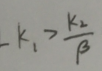 - K₁ > K₂/β